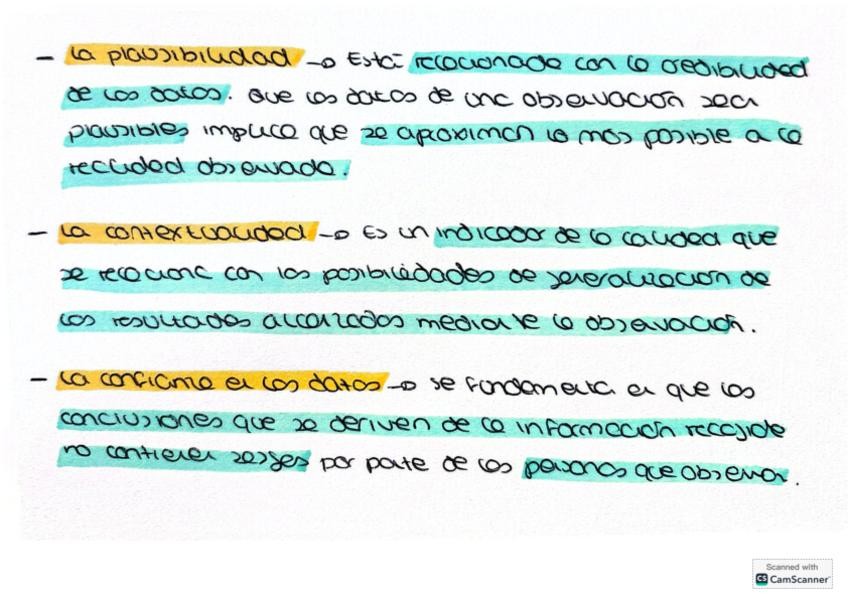 - La plausibilidad → Está relacionada con la credibilidad
de los datos. Que los datos de una observación sean
plausibles implica que se aproximan lo más posible a la
realidad observada.
- La contextualidad → Es un indicador de la calidad que
se relaciona con las posibilidades de generalización de
los resultados alcanzados mediante la observación.
- La confianza en los datos → se fundamenta en que las
conclusiones que se deriven de la información recogida
no contienen sesgos por parte de las personas que observan.
Scanned with
CS CamScanner